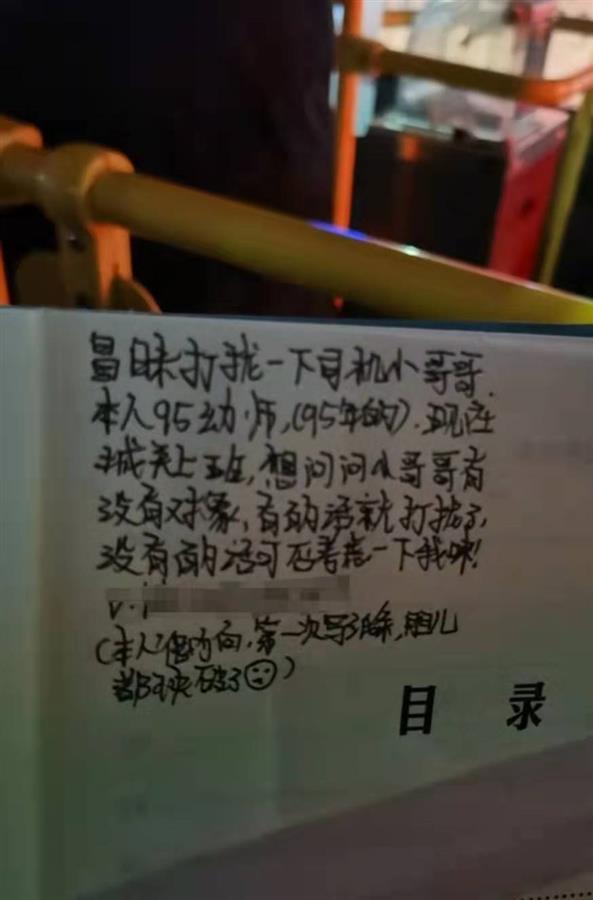 冒昧打扰一下司机小哥哥.
本人95幼师,(95年的).现在
城关上班,想问问小哥哥有
没有对象,有的话就打扰了,
没有的话可否考虑一下我咪!
v:i
(本人偏内向,第一次写纸条,胆儿
都快破了)
目 录